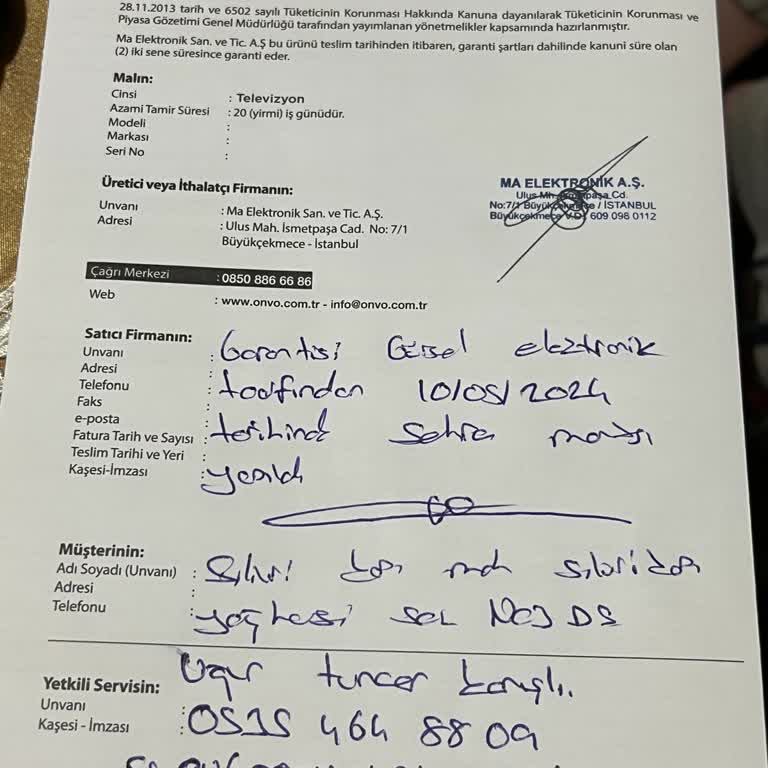 28.11.2013 tarih ve 6502 sayılı Tüketicinin Korunması Hakkında Kanuna dayanılarak Tüketicinin Korunması ve
Piyasa Gözetimi Genel Müdürlüğü tarafından yayımlanan yönetmelikler kapsamında hazırlanmıştır.
Ma Elektronik San. ve Tic. A.Ş bu ürünü teslim tarihinden itibaren, garanti şartları dahilinde kanuni süre olan
(2) iki sene süresince garanti eder.
Malın:
Cinsi : Televizyon
Azami Tamir Süresi : 20 (yirmi) iş günüdür.
Modeli :
Markası :
Seri No :
MA ELEKTRONİK A.Ş.
Ulus Mh. İsmetpaşa Cd.
No:7/1 Büyükçekmece / İSTANBUL
Büyükçekmece V.D. 609 098 0112
Üretici veya İthalatçı Firmanın:
Unvanı : Ma Elektronik San. ve Tic. A.Ş.
Adresi : Ulus Mah. İsmetpaşa Cad. No: 7/1
Büyükçekmece - İstanbul
Çağrı Merkezi : 0850 886 66 86
Web : www.onvo.com.tr - info@onvo.com.tr
Satıcı Firmanın:
Unvanı : Garantisi Güsel elektronik
Adresi :
Telefonu : tarafından 10/05/2024
Faks :
e-posta
Fatura Tarih ve Sayısı : tarihinde
Teslim Tarihi ve Yeri :
Kaşesi-İmzası :
Müşterinin:
Adı Soyadı (Unvanı) :
Adresi :
Telefonu :
Uğur tuncer
Yetkili Servisin:
Unvanı
Kaşesi - İmzası : 0535 464 88 09